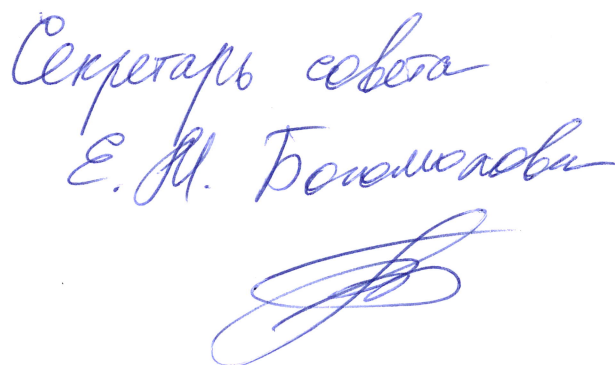 Секретарь совета
Е. М. Богомолова